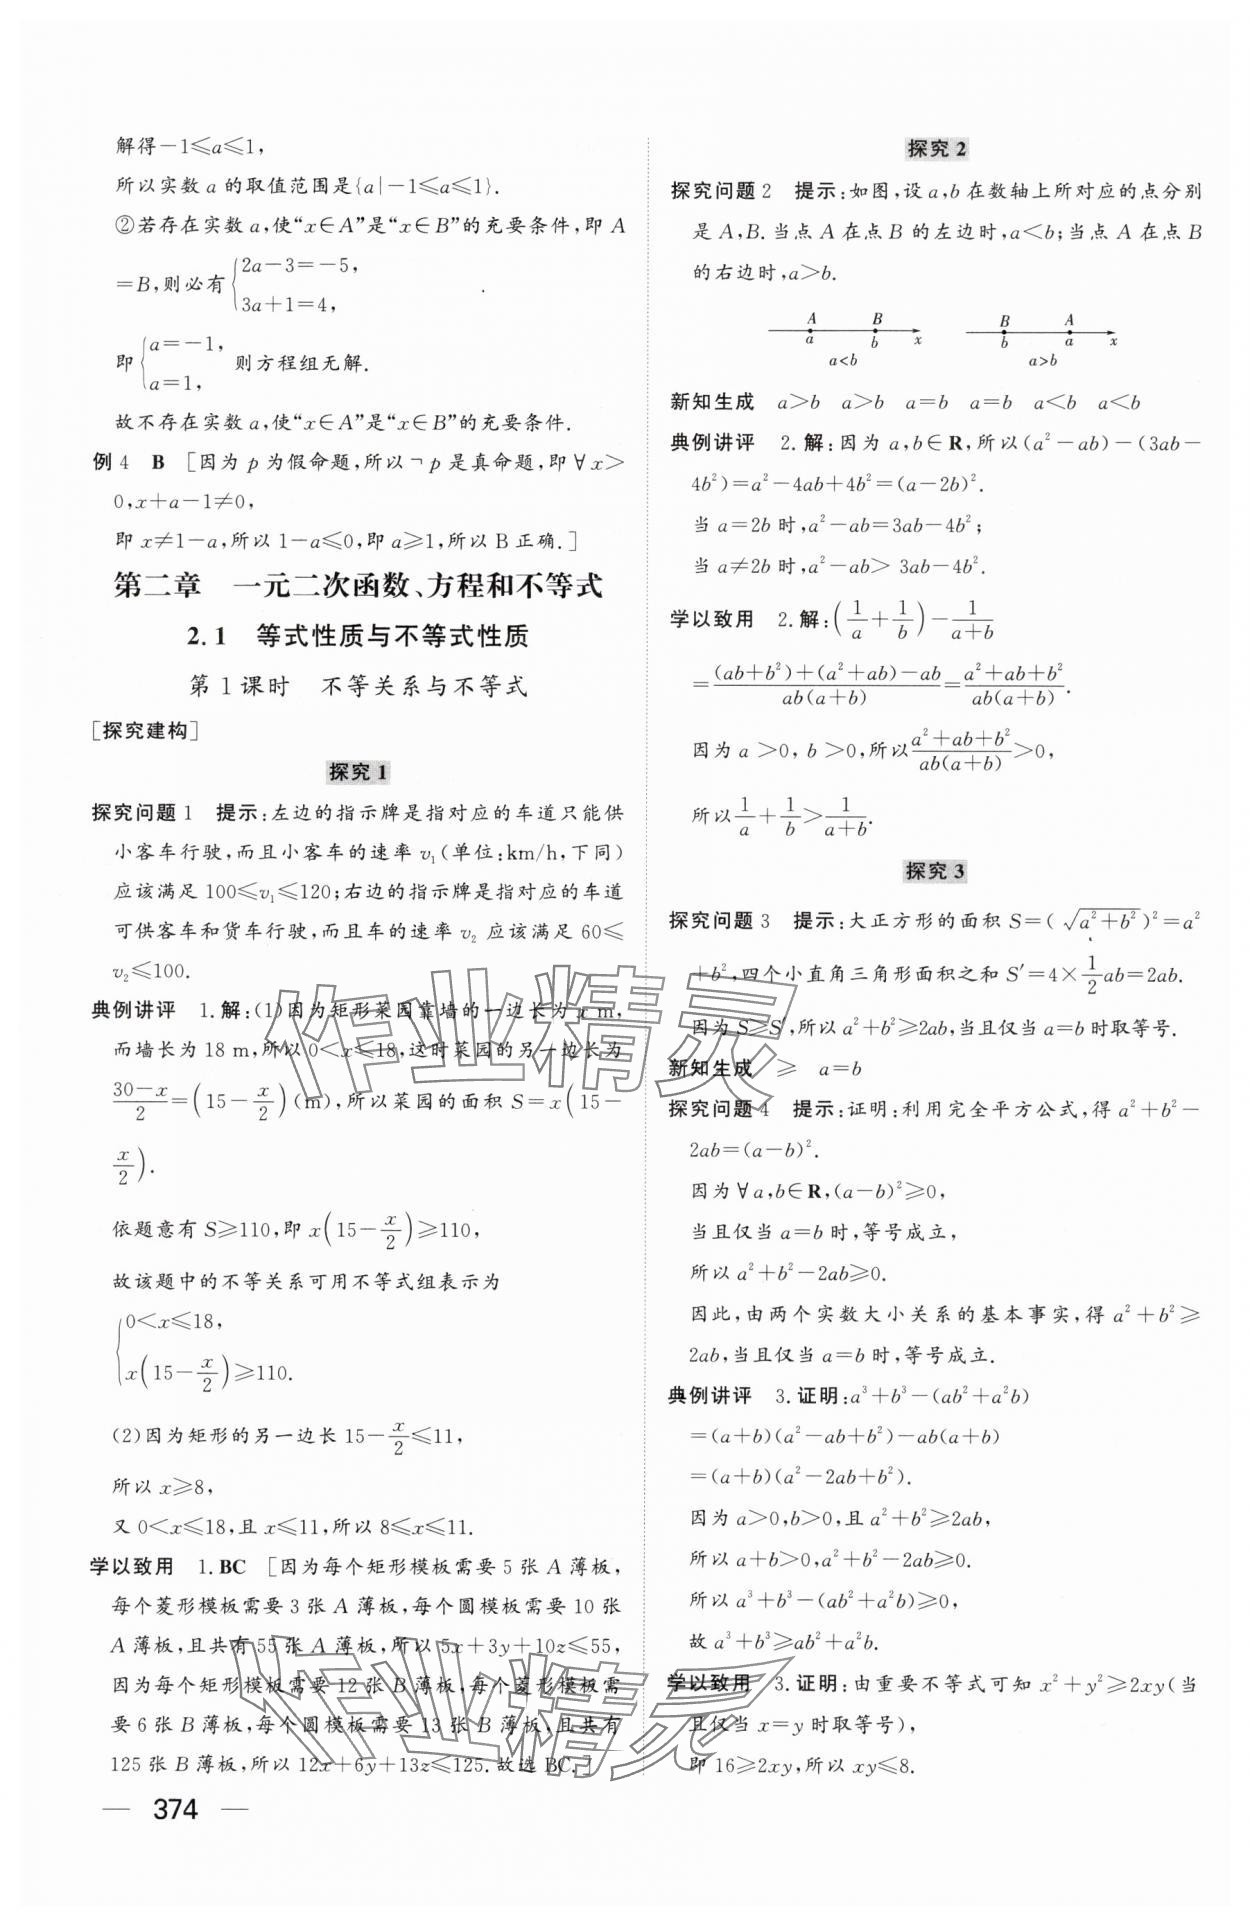 解得－1≤a≤1，
所以实数 a 的取值范围是{a|－1≤a≤1}.
②若存在实数 a,使“x∈A”是“x∈B”的充要条件,即 A
＝B,则必有{2a－3＝－5,
3a＋1＝4,
即{a＝－1,
a＝1, 则方程组无解.
故不存在实数 a,使“x∈A”是“x∈B”的充要条件.
例 4　B　[因为 p 为假命题,所以¬p 是真命题,即∀x＞
0,x＋a－1≠0,
即 x≠1－a,所以 1－a≤0,即 a≥1,所以 B 正确.]
第二章　一元二次函数、方程和不等式
2.1　等式性质与不等式性质
第 1 课时　不等关系与不等式
[探究建构]
探究 1
探究问题 1　提示:左边的指示牌是指对应的车道只能供
小客车行驶,而且小客车的速率 v₁(单位:km/h,下同)
应该满足 100≤v₁≤120;右边的指示牌是指对应的车道
可供客车和货车行驶,而且车的速率 v₂ 应该满足 60≤
v₂≤100.
典例讲评　1.解:(1)因为矩形菜园靠墙的一边长为 x m,
而墙长为 18 m,所以 0＜x≤18,这时菜园的另一边长为
(30－x)/2＝(15－x/2)(m),所以菜园的面积 S＝x(15－
x/2).
依题意有 S≥110,即 x(15－x/2)≥110,
故该题中的不等关系可用不等式组表示为
{0＜x≤18,
x(15－x/2)≥110.
(2)因为矩形的另一边长 15－x/2≤11,
所以 x≥8,
又 0＜x≤18,且 x≤11,所以 8≤x≤11.
学以致用　1.BC　[因为每个矩形模板需要 5 张 A 薄板,
每个菱形模板需要 3 张 A 薄板,每个圆模板需要 10 张
A 薄板,且共有 55 张 A 薄板,所以 5x＋3y＋10z≤55,
因为每个矩形模板需要 12 张 B 薄板,每个菱形模板需
要 6 张 B 薄板,每个圆模板需要 13 张 B 薄板,且共有
125 张 B 薄板,所以 12x＋6y＋13z≤125.故选 BC.]
— 374 —
探究 2
探究问题 2　提示:如图,设 a,b 在数轴上所对应的点分别
是 A,B.当点 A 在点 B 的左边时,a＜b;当点 A 在点 B
的右边时,a＞b.
A B
a b x
a<b
B A
b a x
a>b
新知生成　a＞b　a＞b　a＝b　a＝b　a＜b　a＜b
典例讲评　2.解:因为 a,b∈R,所以(a²－ab)－(3ab－
4b²)＝a²－4ab＋4b²＝(a－2b)².
当 a＝2b 时,a²－ab＝3ab－4b²;
当 a≠2b 时,a²－ab＞3ab－4b².
学以致用　2.解:(1/a＋1/b)－1/(a＋b)
＝((ab＋b²)＋(a²＋ab)－ab)/(ab(a＋b))＝(a²＋ab＋b²)/(ab(a＋b)).
因为 a＞0,b＞0,所以(a²＋ab＋b²)/(ab(a＋b))＞0,
所以1/a＋1/b＞1/(a＋b).
探究 3
探究问题 3　提示:大正方形的面积 S＝(√(a²＋b²))²＝a²
＋b²,四个小直角三角形面积之和 S′＝4×1/2ab＝2ab.
因为 S≥S′,所以 a²＋b²≥2ab,当且仅当 a＝b 时取等号.
新知生成　≥　a＝b
探究问题 4　提示:证明:利用完全平方公式,得 a²＋b²－
2ab＝(a－b)².
因为∀a,b∈R,(a－b)²≥0,
当且仅当 a＝b 时,等号成立,
所以 a²＋b²－2ab≥0.
因此,由两个实数大小关系的基本事实,得 a²＋b²≥
2ab,当且仅当 a＝b 时,等号成立.
典例讲评　3.证明:a³＋b³－(ab²＋a²b)
＝(a＋b)(a²－ab＋b²)－ab(a＋b)
＝(a＋b)(a²－2ab＋b²).
因为 a＞0,b＞0,且 a²＋b²≥2ab,
所以 a＋b＞0,a²＋b²－2ab≥0.
所以 a³＋b³－(ab²＋a²b)≥0,
故 a³＋b³≥ab²＋a²b.
学以致用　3.证明:由重要不等式可知 x²＋y²≥2xy(当
且仅当 x＝y 时取等号),
即 16≥2xy,所以 xy≤8.
作业精灵
作业精灵